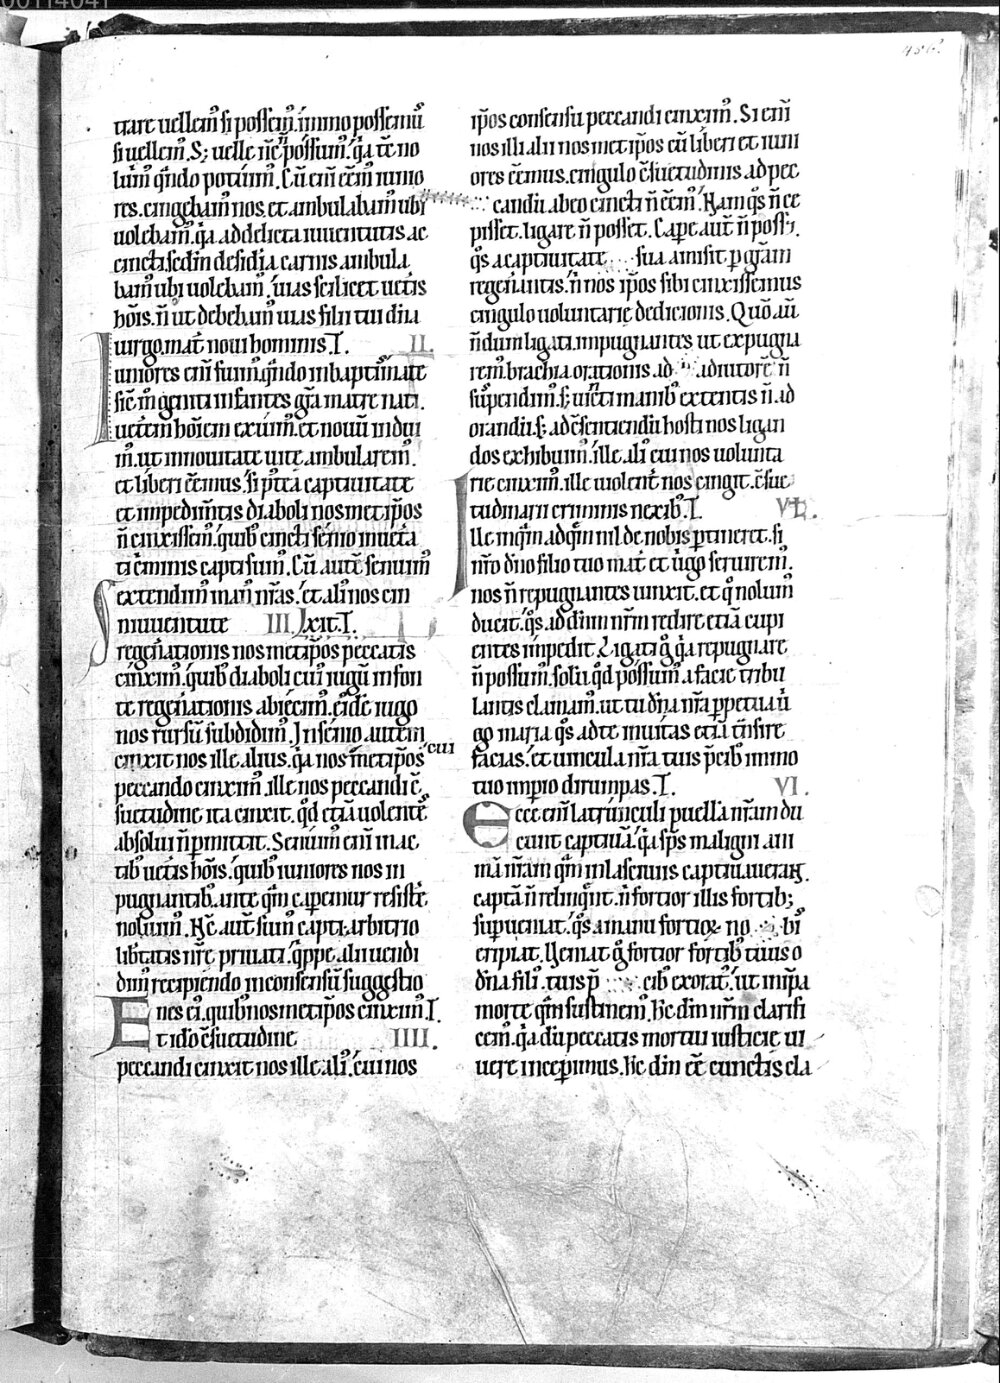 trare uellem᷒ si possem᷒. immo possemꝰ
si uellem᷒. S; uelle nec possum᷒. q̇a t̄c no
lum᷒ qn̄do potuim᷒. Cū em̄ eēm᷒ iunio
res. cingebam᷒ nos. et ambulabam᷒ ubi
uolebam᷒. q̇a ad delicta iuuentutis ac
cincti. sed in desidia carnis ambula
bam᷒ ubi uolebam᷒. uias scilicet uet̄is
hōis. n̄ ut debebam᷒ uias filii tui diu
uirgo. mat̄ noui hominis. T. II.
Iuniores em̄ fuim᷒. qn̄do in baptismate
sic̄ m̊ geniti infantes gr̄a matre nati.
uet̄em hoīem exuim᷒. et nouū indui
m᷒. ut in nouitate uite ambularem᷒.
et liberi eēmus. si p̄tea captiuitate
et impedim̄tis diaboli nos metip̄os
n̄ cinxissem᷒. quib᷒ cincti senio inueta
ti c̓minis capti sum᷒. Cū autē senuim᷒
extendim᷒ man᷒ nr̄as. et ali᷒ nos cin
Sin iuuentute III. xit. T.
regen̄ationis nos metip̄os peccatis
cinxim᷒. quib᷒ diaboli cui᷒ iugū in fon
te regen̄ationis abiecim᷒. eidē iugo
nos rursū subdidim᷒. In senio autem
cinxit nos ille alius. q̇a nos metip̄os cui
peccando cinxim᷒. ille nos peccandi c̄
suetudine ita cinxit. q̇d etiā uolentes
absolui n̄ p̄mittit. Senuim᷒ em̄ in ac
tib᷒ uet̄is hōis. quib᷒ iuniores nos in
pugnantib᷒. ante qm̄ caperemur resist̄e
noluim᷒. Nc̄ aut̄ sum᷒ capti. arbitrio
lib̄tatis nr̄e priuati. q̇ppe alii uendi
dim᷒ recipiendo in consensū suggestio
Enes ei᷒. quib᷒ nos metip̄os cinxim᷒. T.
t ido c̄suetudine IIII.
peccandi cinxit nos ille ali᷒. cui nos
ip̄os consensu peccandi cinxim᷒. Si em̄
nos illi alii nos metip̄os cū liberi et iuni
ores eēmus. cingulo c̄suetudinis ad pec
candū ab eo cincti n̄ eēm᷒. Nam q̇s n̄ ce
pisset. ligare n̄ posset. Cape aut̄ n̄ poss;.
q̇s a captiuitate sua amisit p gr̄am
regen̄antis. n̄ nos ip̄os sibi cinxissemus
cingulo uoluntarie dedicionis. Quō au̅
n̄dum ligati. inpugnantes ut expugna
rem᷒. brachia orationis ad adiutorē n̄
su᷒pendim᷒. s; uicti manib᷒ extentis n̄ ad
orandū. s; ad c̄sentiendū hosti nos ligan
dos exhibuim᷒. ille ali᷒ cui nos uolunta
rie cinxim᷒. ille uolent̄ nos cingit. c̄sue
tudinarii criminis nexib᷒. T. VI.
Ille inq̇m ad q̇m nil de nobis ptineret. si
nr̄o dn̄o filio tuo mat̄ et u̇go seruirem᷒.
nos n̄ repugnantes uinxit. et q̊ nolum᷒
ducit. q̇s ad dn̄m nr̄m redire etiā cupi
entes impedit. Ligati g̊ q̇a repugnare
n̄ possum᷒. solū q̇d possum᷒ a facie tribu
lantis clamam᷒. ut tu dn̄a nr̄a ppetua u̇
go maria q̇s ad te inuitas etiā t̄nsire
facias. et uincula nr̄a tuis p̄cib᷒ immo
tuo imp̄io dirumpas. T. VI.
Ecce em̄ latrunculi puellā nr̄am du
cunt captiuā. q̇a sp̄s maligni ani
mā nr̄am qm̄ in lasciuiis captiuaueraꝝ.
captā n̄ relinq̇nt. n̄ fortior illis fortib᷒;
supueniat. q̇s a manu fortioꝝ no bī
eripiat. Ueniat g̊ fortior fortib᷒ tuus o
dn̄a fili᷒. tuis p̄ cib᷒ exorat᷒. ut mīpa
morte qm̄ sustinem᷒. Hc̄ din nr̄m clarifi
cem᷒. q̇a dū peccatis mortui iusticie ui
uere inceperimus. Hc̄ din eē cunctis cla